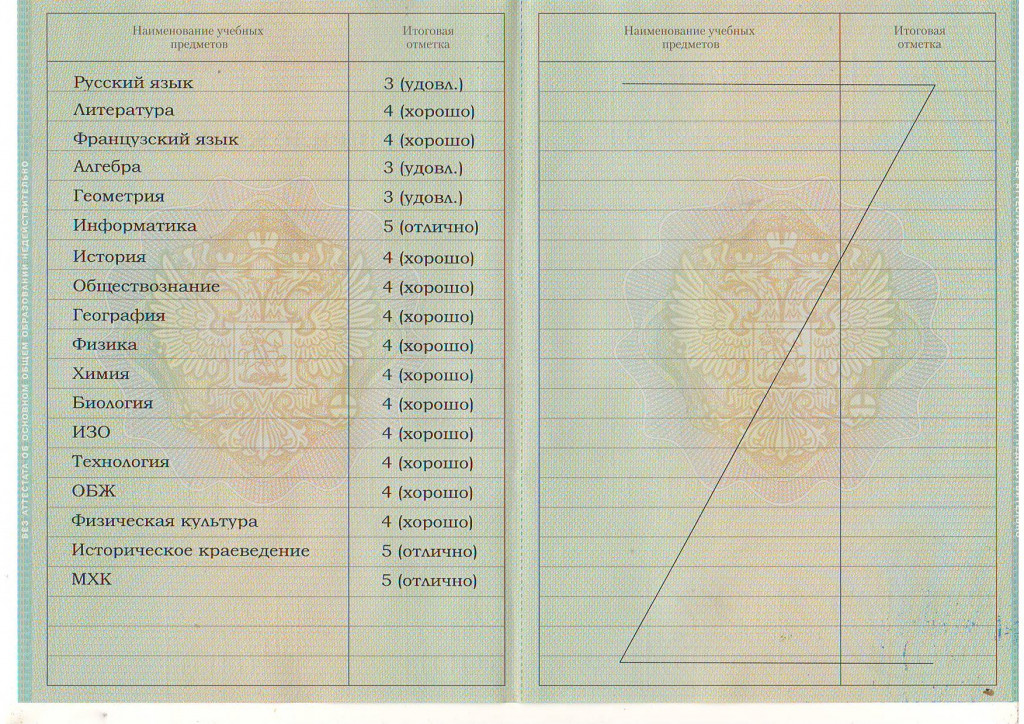 Наименование учебных предметов
Итоговая отметка
Русский язык 3 (удовл.)
Литература 4 (хорошо)
Французский язык 4 (хорошо)
Алгебра 3 (удовл.)
Геометрия 3 (удовл.)
Информатика 5 (отлично)
История 4 (хорошо)
Обществознание 4 (хорошо)
География 4 (хорошо)
Физика 4 (хорошо)
Химия 4 (хорошо)
Биология 4 (хорошо)
ИЗО 4 (хорошо)
Технология 4 (хорошо)
ОБЖ 4 (хорошо)
Физическая культура 4 (хорошо)
Историческое краеведение 5 (отлично)
МХК 5 (отлично)
Наименование учебных предметов
Итоговая отметка
БЕЗ АТТЕСТАТА ОБ ОСНОВНОМ ОБЩЕМ ОБРАЗОВАНИИ НЕДЕЙСТВИТЕЛЬНО